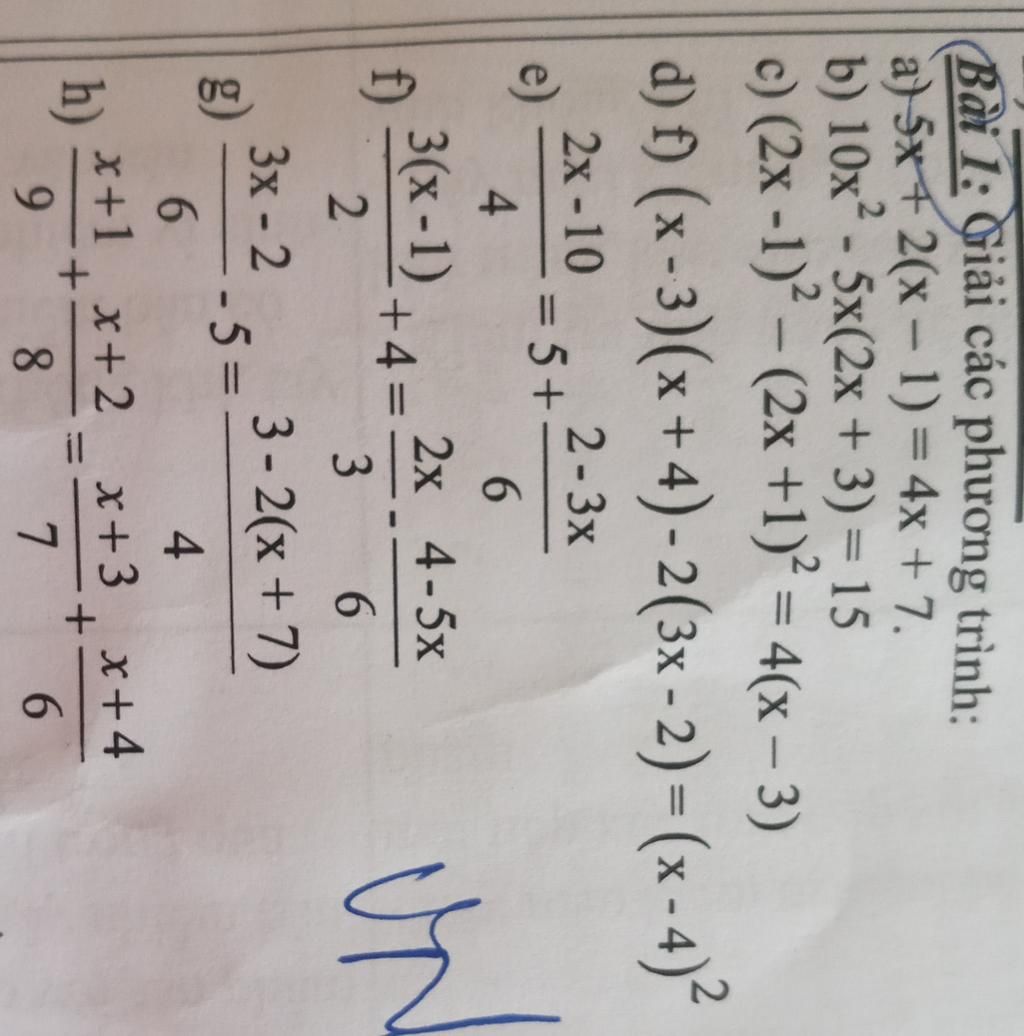 Bài 1: Giải các phương trình:
a) 5x + 2(x – 1) = 4x + 7.
b) 10x² - 5x(2x + 3) = 15
c) (2x -1)² – (2x +1)² = 4(x – 3)
d) f) (x - 3)(x + 4) - 2(3x - 2) = (x - 4)²
e) (2x -10)/4 = 5 + (2 - 3x)/6
f) 3(x -1)/2 + 4 = 2x/3 - (4 - 5x)/6
g) (3x - 2)/6 - 5 = (3 - 2(x + 7))/4
h) (x+1)/9 + (x+2)/8 = (x+3)/7 + (x+4)/6